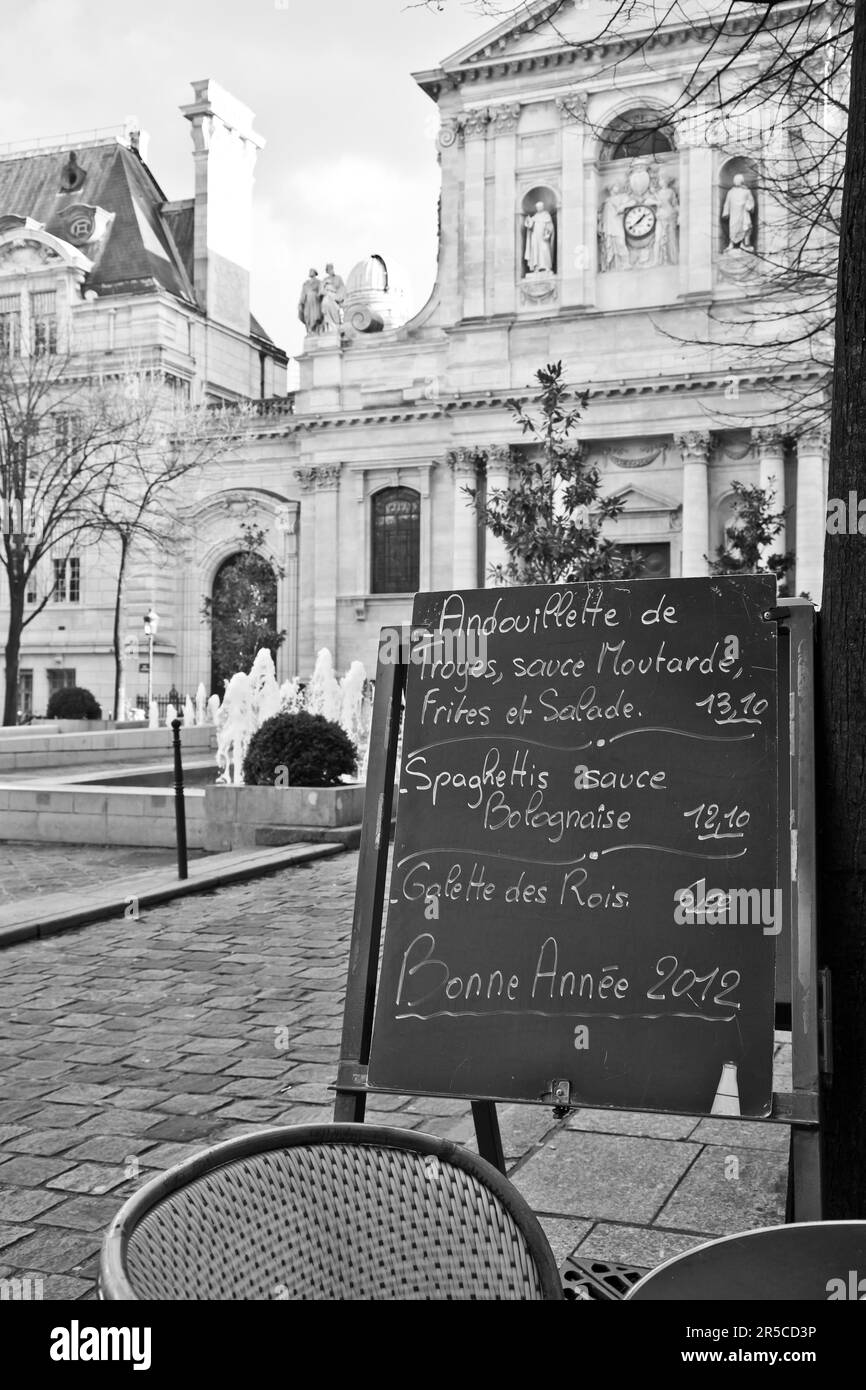 Andouillette de
Troyes, sauce Moutarde,
Frites et Salade. 13,10
Spaghettis sauce
Bolognaise 12,10
Galette des Rois. 6,00
Bonne Année 2012
alamy
Image ID: 2R5CD3P
www.alamy.com